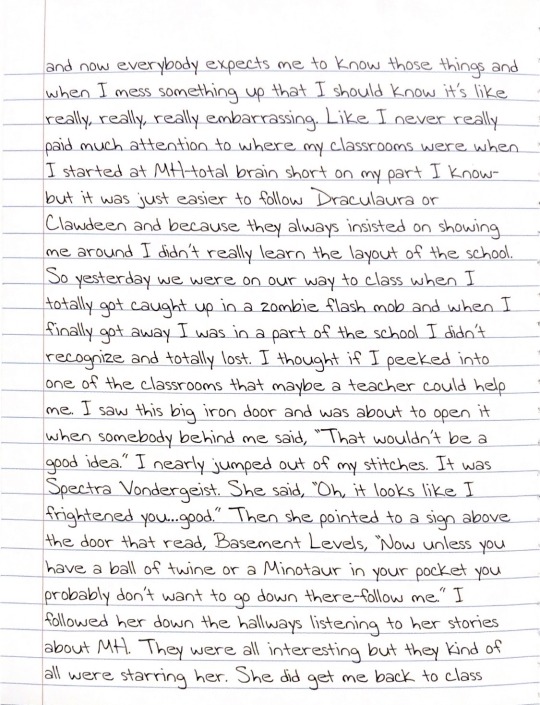 and now everybody expects me to know those things and
when I mess something up that I should know it's like
really, really, really embarrassing. Like I never really
paid much attention to where my classrooms were when
I started at MH-total brain short on my part I know-
but it was just easier to follow Draculaura or
Clawdeen and because they always insisted on showing
me around I didn't really learn the layout of the school.
So yesterday we were on our way to class when I
totally got caught up in a zombie flash mob and when I
finally got away I was in a part of the school I didn't
recognize and totally lost. I thought if I peeked into
one of the classrooms that maybe a teacher could help
me. I saw this big iron door and was about to open it
when somebody behind me said, "That wouldn't be a
good idea." I nearly jumped out of my stitches. It was
Spectra Vondergeist. She said, "Oh, it looks like I
frightened you...good." Then she pointed to a sign above
the door that read, Basement Levels, "Now unless you
have a ball of twine or a Minotaur in your pocket you
probably don't want to go down there-follow me." I
followed her down the hallways listening to her stories
about MH. They were all interesting but they kind of
all were starring her. She did get me back to class